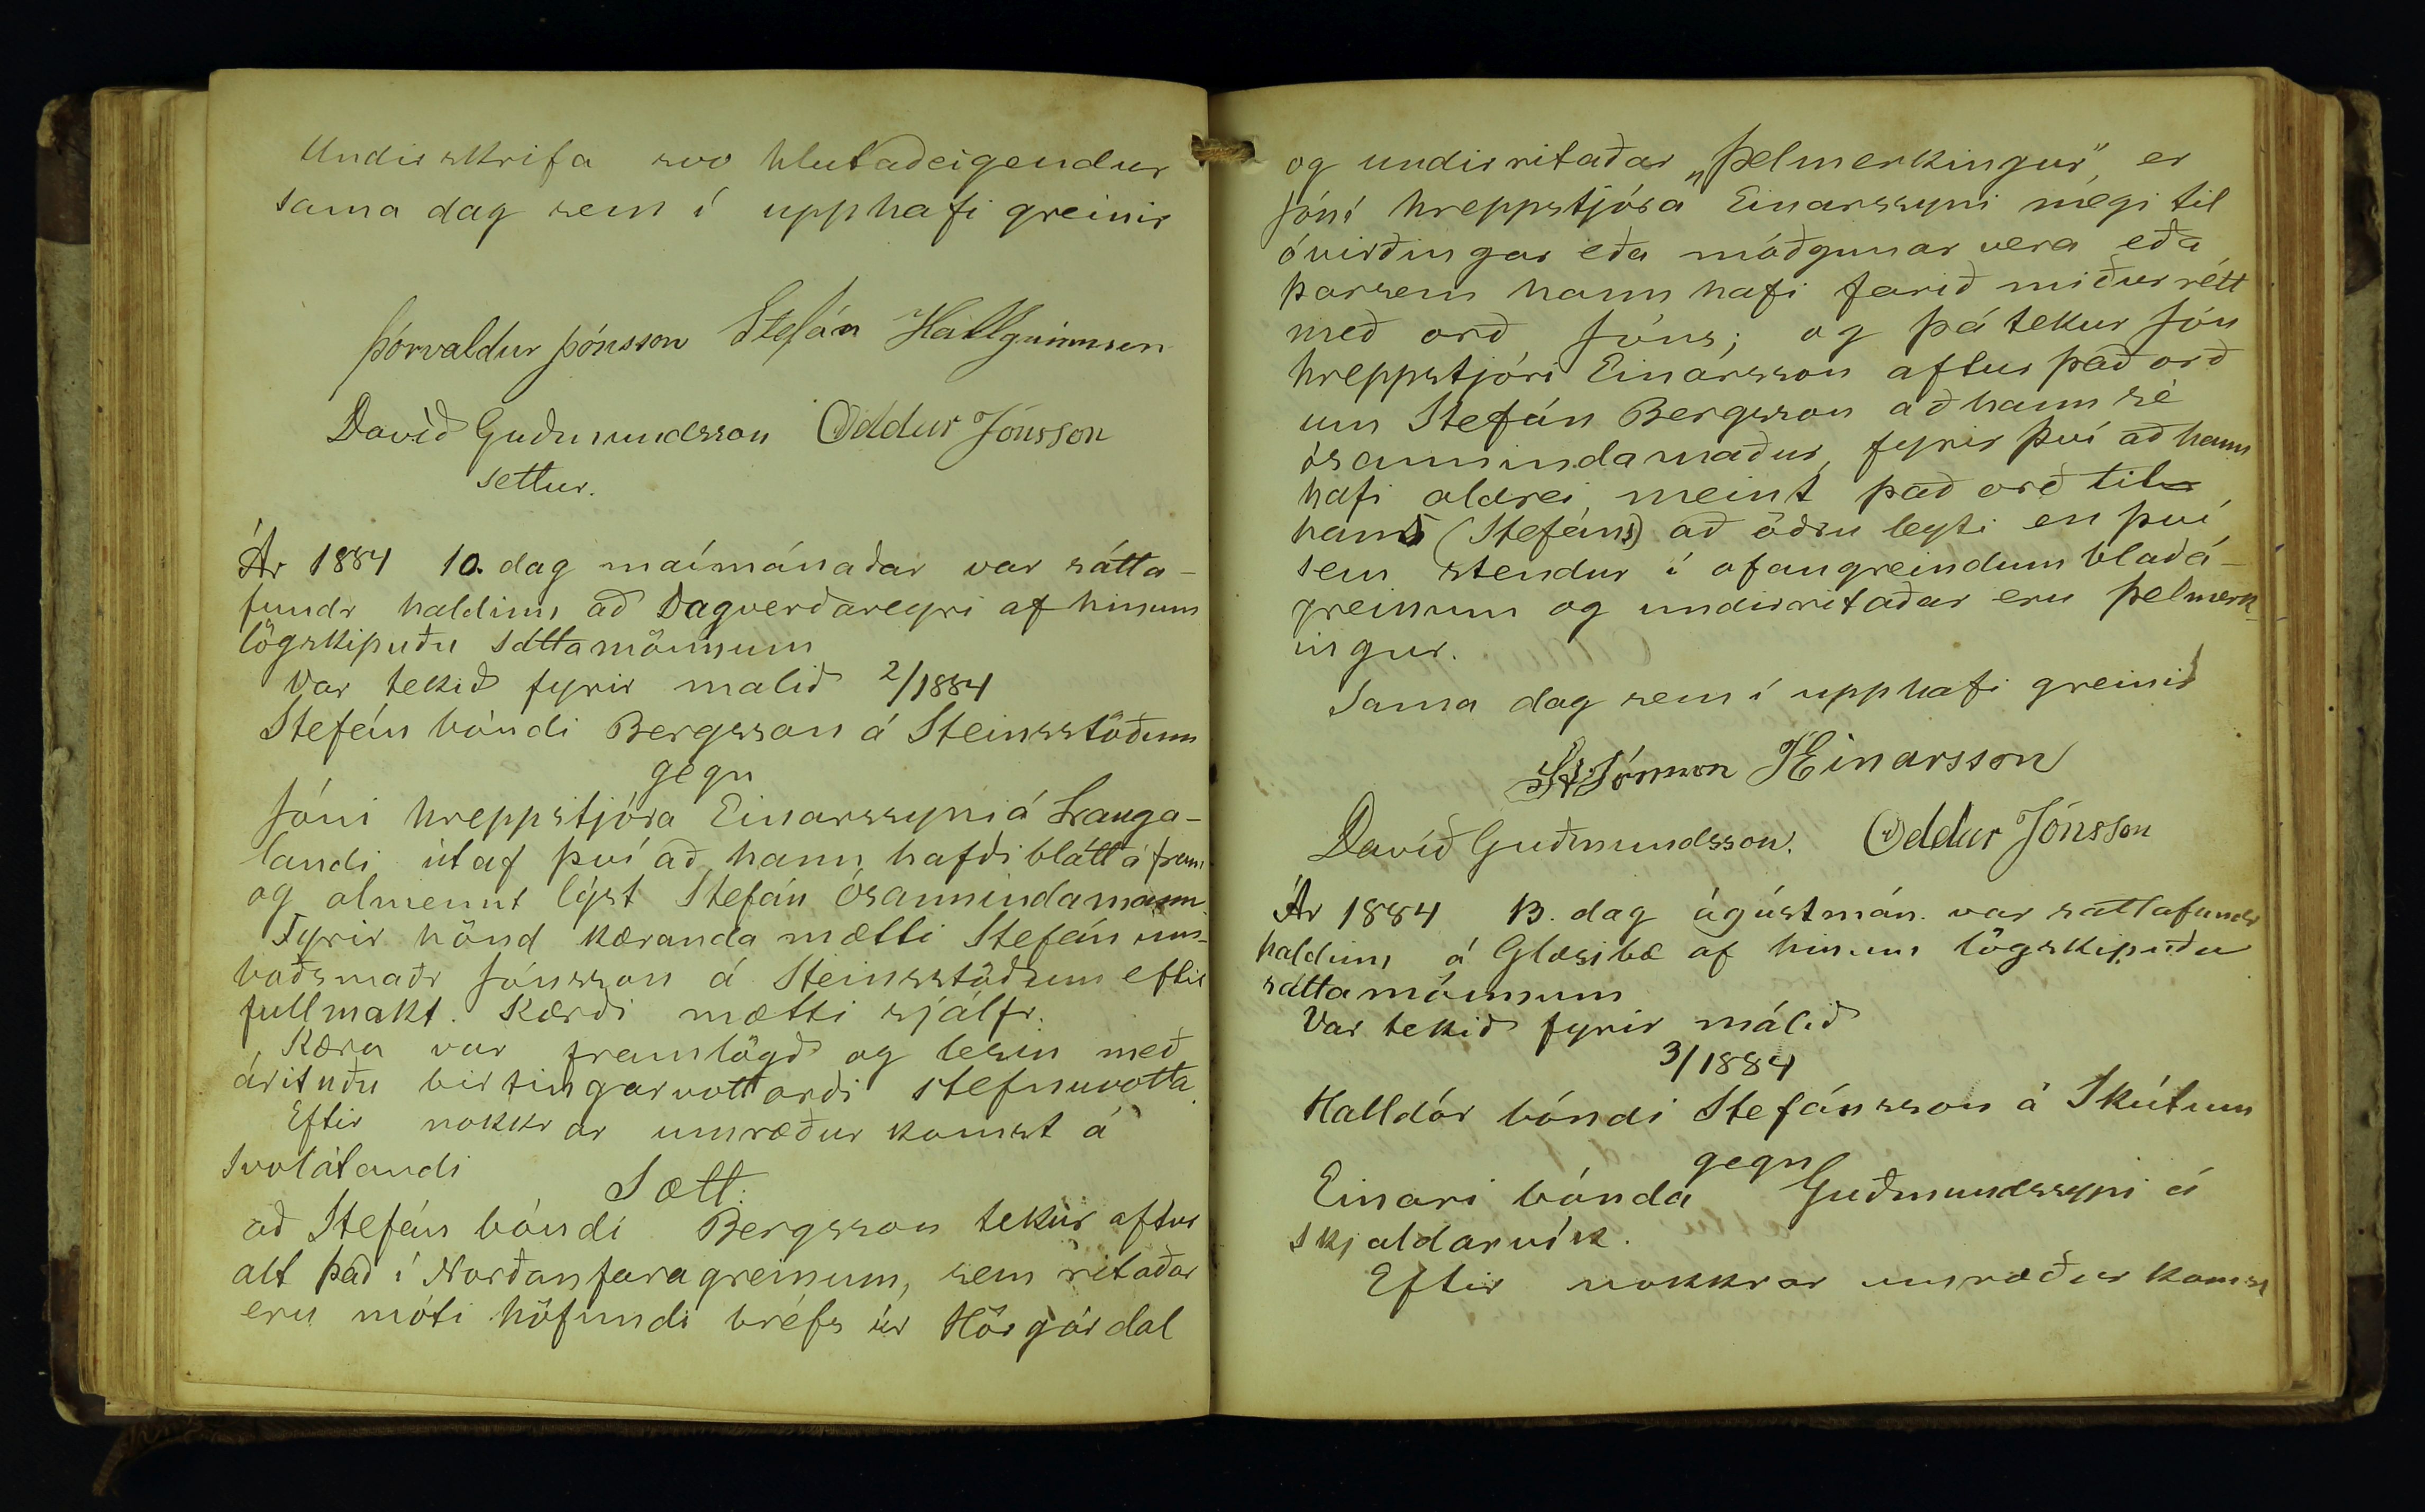 Undirskrifa svo hlutaðeigendur
sama dag sem í upphafi greinir
Þórvaldur Þónsson Stefán Hallgrímsson
Davíð Guðmundsson Oddur Jónsson
settur.
Ár 1884 10. dag maímánaðar var sátta-
fundr haldinn að Dagverðareyri af hinum
lögskipuðu sáttamönnum
Var tekið fyrir malið 2/1884
Stefán bóndi Bergsson á Steinsstöðum
gegn
Jóni hreppstjóra Einarssyni á Lauga-
landi útaf því að hann hafði blátt á fram
og alment lýst Stefán Ósannindamann.
Fyrir hönd kæranda mætti Stefán um-
boðsmaðr Jónsson á Steinsstöðum eftir
fullmakt. Kærði mætti sjálfr.
Kæra var framlögð og lesin með
árituðu birtingarvottorði stefnuvotta.
Eftir nokkrar umræður komst á
svolátandi
Sætt:
að Stefán bóndi Bergsson tekur aftur
alt það í Norðanfaragreinum, sem ritaðar
eru móti höfundi bréfs úr Hörgárdal
og undirritaðar „Þelmerkingur", er
Jóni hreppstjóra Einarssyni megi til
óvirðingar eða móðgunar vera eða
þarsem hann hafi farið miður rétt
með orð Jóns; og þá tekur Jón
hreppstjóri Einarsson aftur það orð
um Stefán Bergsson að hann sé
ósannindamaður, fyrir því að hann
hafi aldrei meint það orð til
hans (Stefáns) að öðru leyti en því
sem stendur í ofangreindum blaðá-
greinum og undirritaðar eru Þelmerk-
ingur.
Sama dag sem í upphafi greinir
St Jónsson JEinarsson
Davíð Guðmundsson. Oddur Jónsson
Ár 1884 13. dag ágústmán. var sattafundr
haldinn á Glæsibæ af hinum lögskipuðu
sáttamönnum
Var tekið fyrir málið
3/1884
Halldór bóndi Stefánsson á Skútum
gegn
Einari bónda Guðmundssyni á
Skjaldarvík.
Eftir nokkrar umræður komst